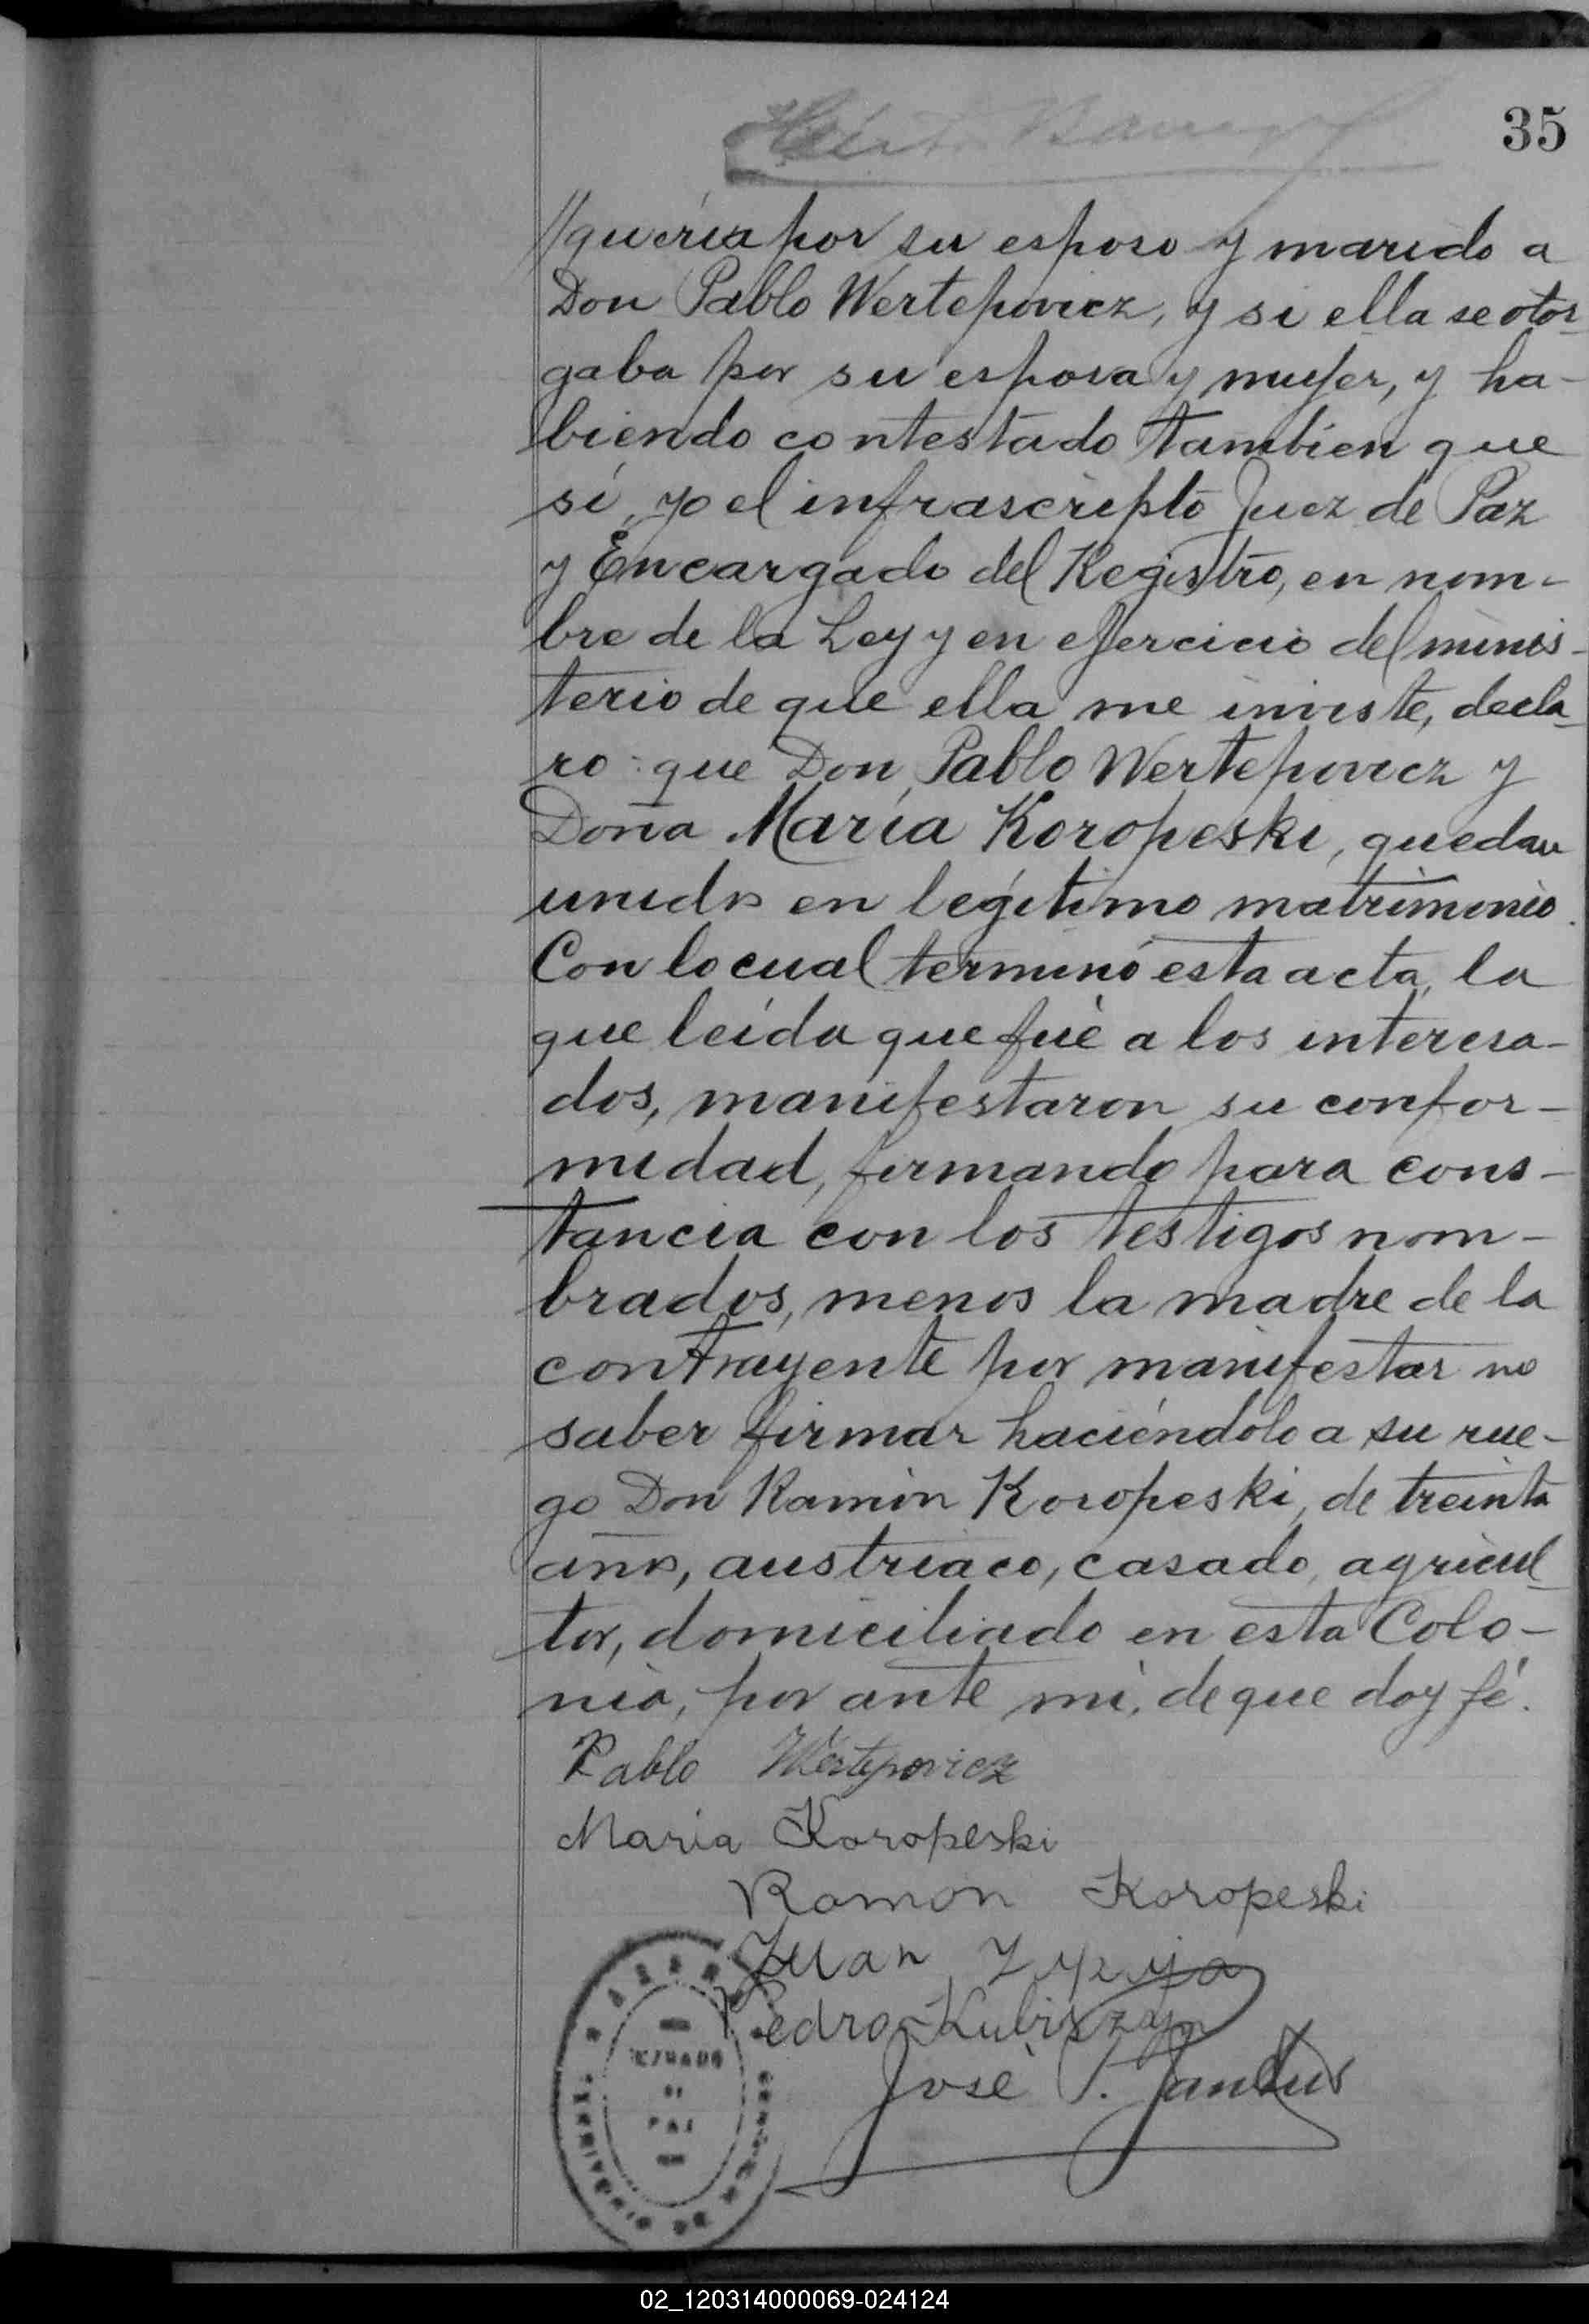 35
//quería por su esposo y marido a
Don Pablo Wertepovicz, y si ella se otor-
gaba por su esposa y mujer, y ha-
biendo contestado tambien que
sí, yo el infrascripto Juez de Paz
y Encargado del Registro, en nom-
bre de la Ley y en ejercicio del minis-
terio de que ella me inviste, decla-
ro: que Don Pablo Wertepovicz y
Doña María Koropeski, quedan
unidos en legítimo matrimonio.
Con lo cual terminó esta acta, la
que leída que fué a los interesa-
dos, manifestaron su confor-
midad, firmando para cons-
tancia con los testigos nom-
brados, menos la madre de la
contrayente por manifestar no
saber firmar haciéndolo a su rue-
go Don Ramón Koropeski, de treinta
años, austriaco, casado, agricul-
tor, domiciliado en esta Colo-
nia, por ante mí, de que doy fé.
Pablo Wertepovicz
Maria Koropeski
Ramon Koropeski
Juan
Pedro Kubiszyn
José
JUZGADO
DE
PAZ
02_120314000069-024124